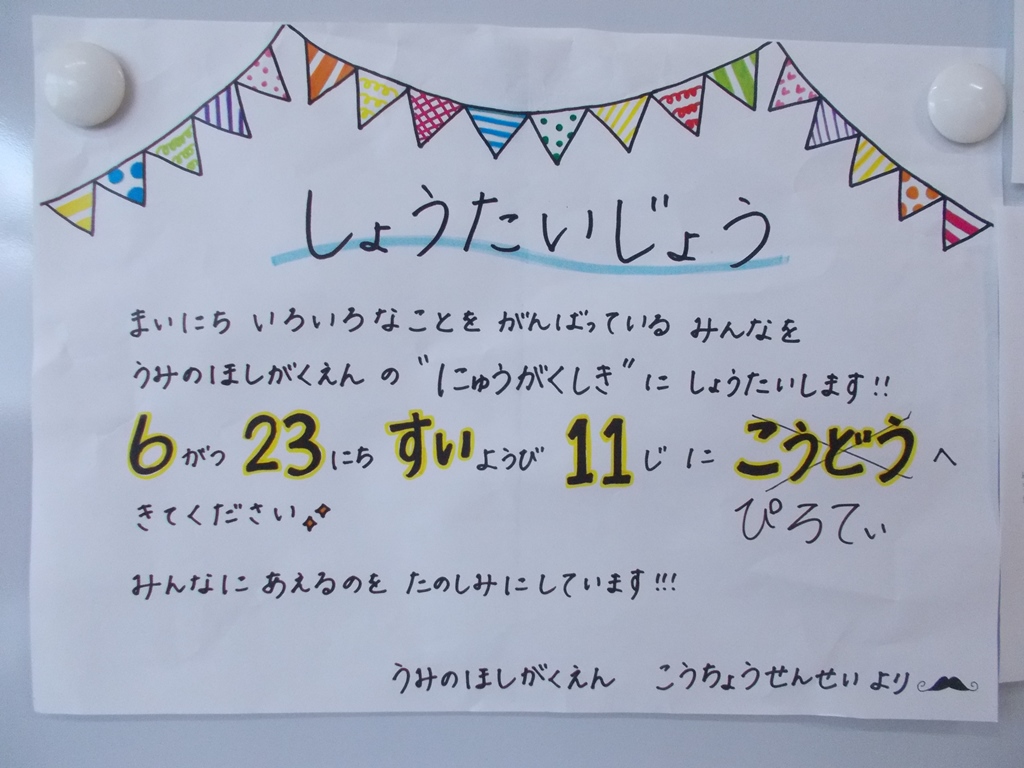 しょうたいじょう
まいにち いろいろなことを がんばっている みんなを
うみのほしがくえん の "にゅうがくしき"に しょうたいします!!
6がつ 23にち すいようび 11じ に こうどう へ
ぴろてぃ
きてください
みんなに あえるのを たのしみにしています!!!
うみのほしがくえん こうちょうせんせい より